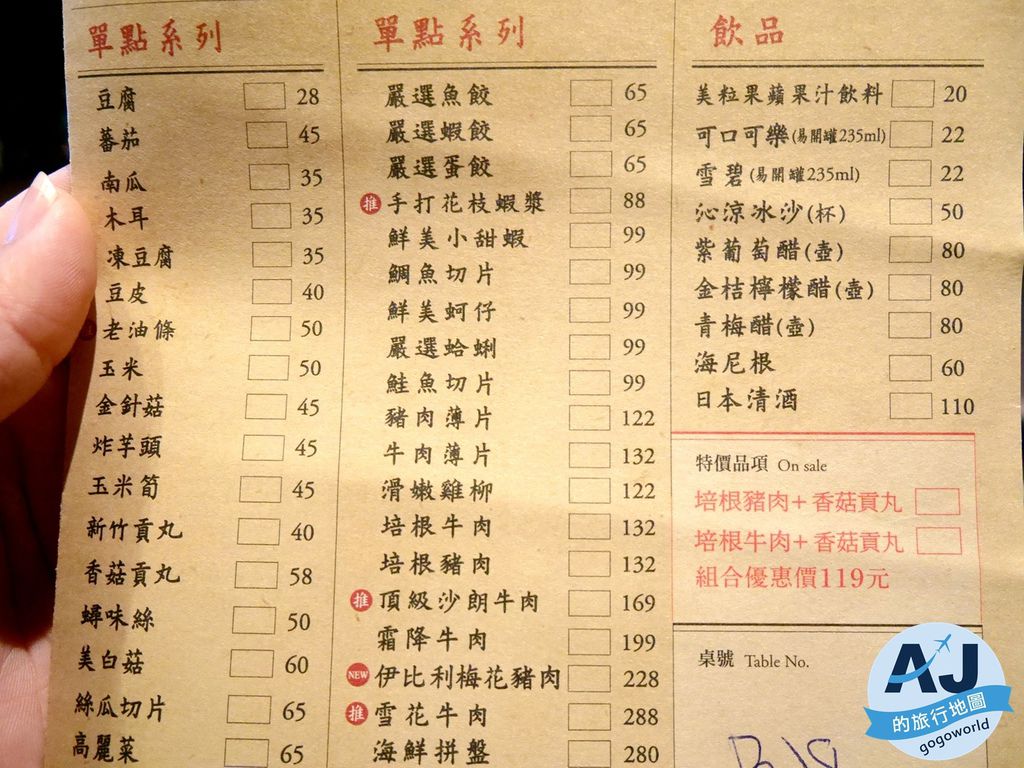 單點系列
豆腐 28
蕃茄 45
南瓜 35
木耳 35
凍豆腐 35
豆皮 40
老油條 50
玉米 50
金針菇 45
炸芋頭 45
玉米筍 45
新竹貢丸 40
香菇貢丸 58
蟳味絲 50
美白菇 60
絲瓜切片 65
高麗菜 65
單點系列
嚴選魚餃 65
嚴選蝦餃 65
嚴選蛋餃 65
推 手打花枝蝦漿 88
鮮美小甜蝦 99
鯛魚切片 99
鮮美蚵仔 99
嚴選蛤蜊 99
鮭魚切片 99
豬肉薄片 122
牛肉薄片 132
滑嫩雞柳 122
培根牛肉 132
培根豬肉 132
推 頂級沙朗牛肉 169
霜降牛肉 199
NEW 伊比利梅花豬肉 228
推 雪花牛肉 288
海鮮拼盤 280
飲品
美粒果蘋果汁飲料 20
可口可樂(易開罐235ml) 22
雪碧(易開罐235ml) 22
沁涼冰沙(杯) 50
紫葡萄醋(壺) 80
金桔檸檬醋(壺) 80
青梅醋(壺) 80
海尼根 60
日本清酒 110
特價品項 On sale
培根豬肉+香菇貢丸
培根牛肉+香菇貢丸
組合優惠價119元
桌號 Table No.
AJ
的旅行地圖
gogoworld